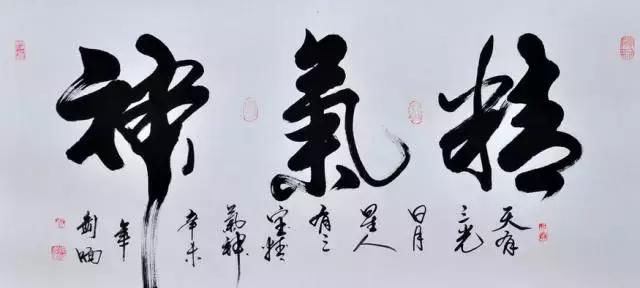 精氣神
天有
三光
日月
星人
有三
宝精
氣神
辛未
年